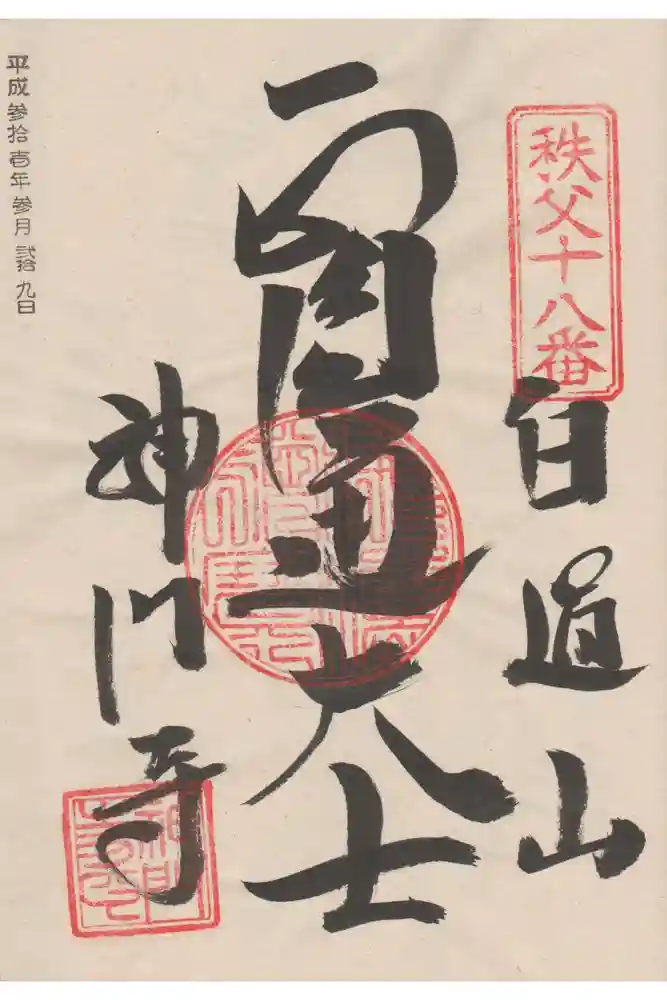 秩父十八番
白道山
圓通大士
神門寺
平成参拾壱年参月弐拾九日